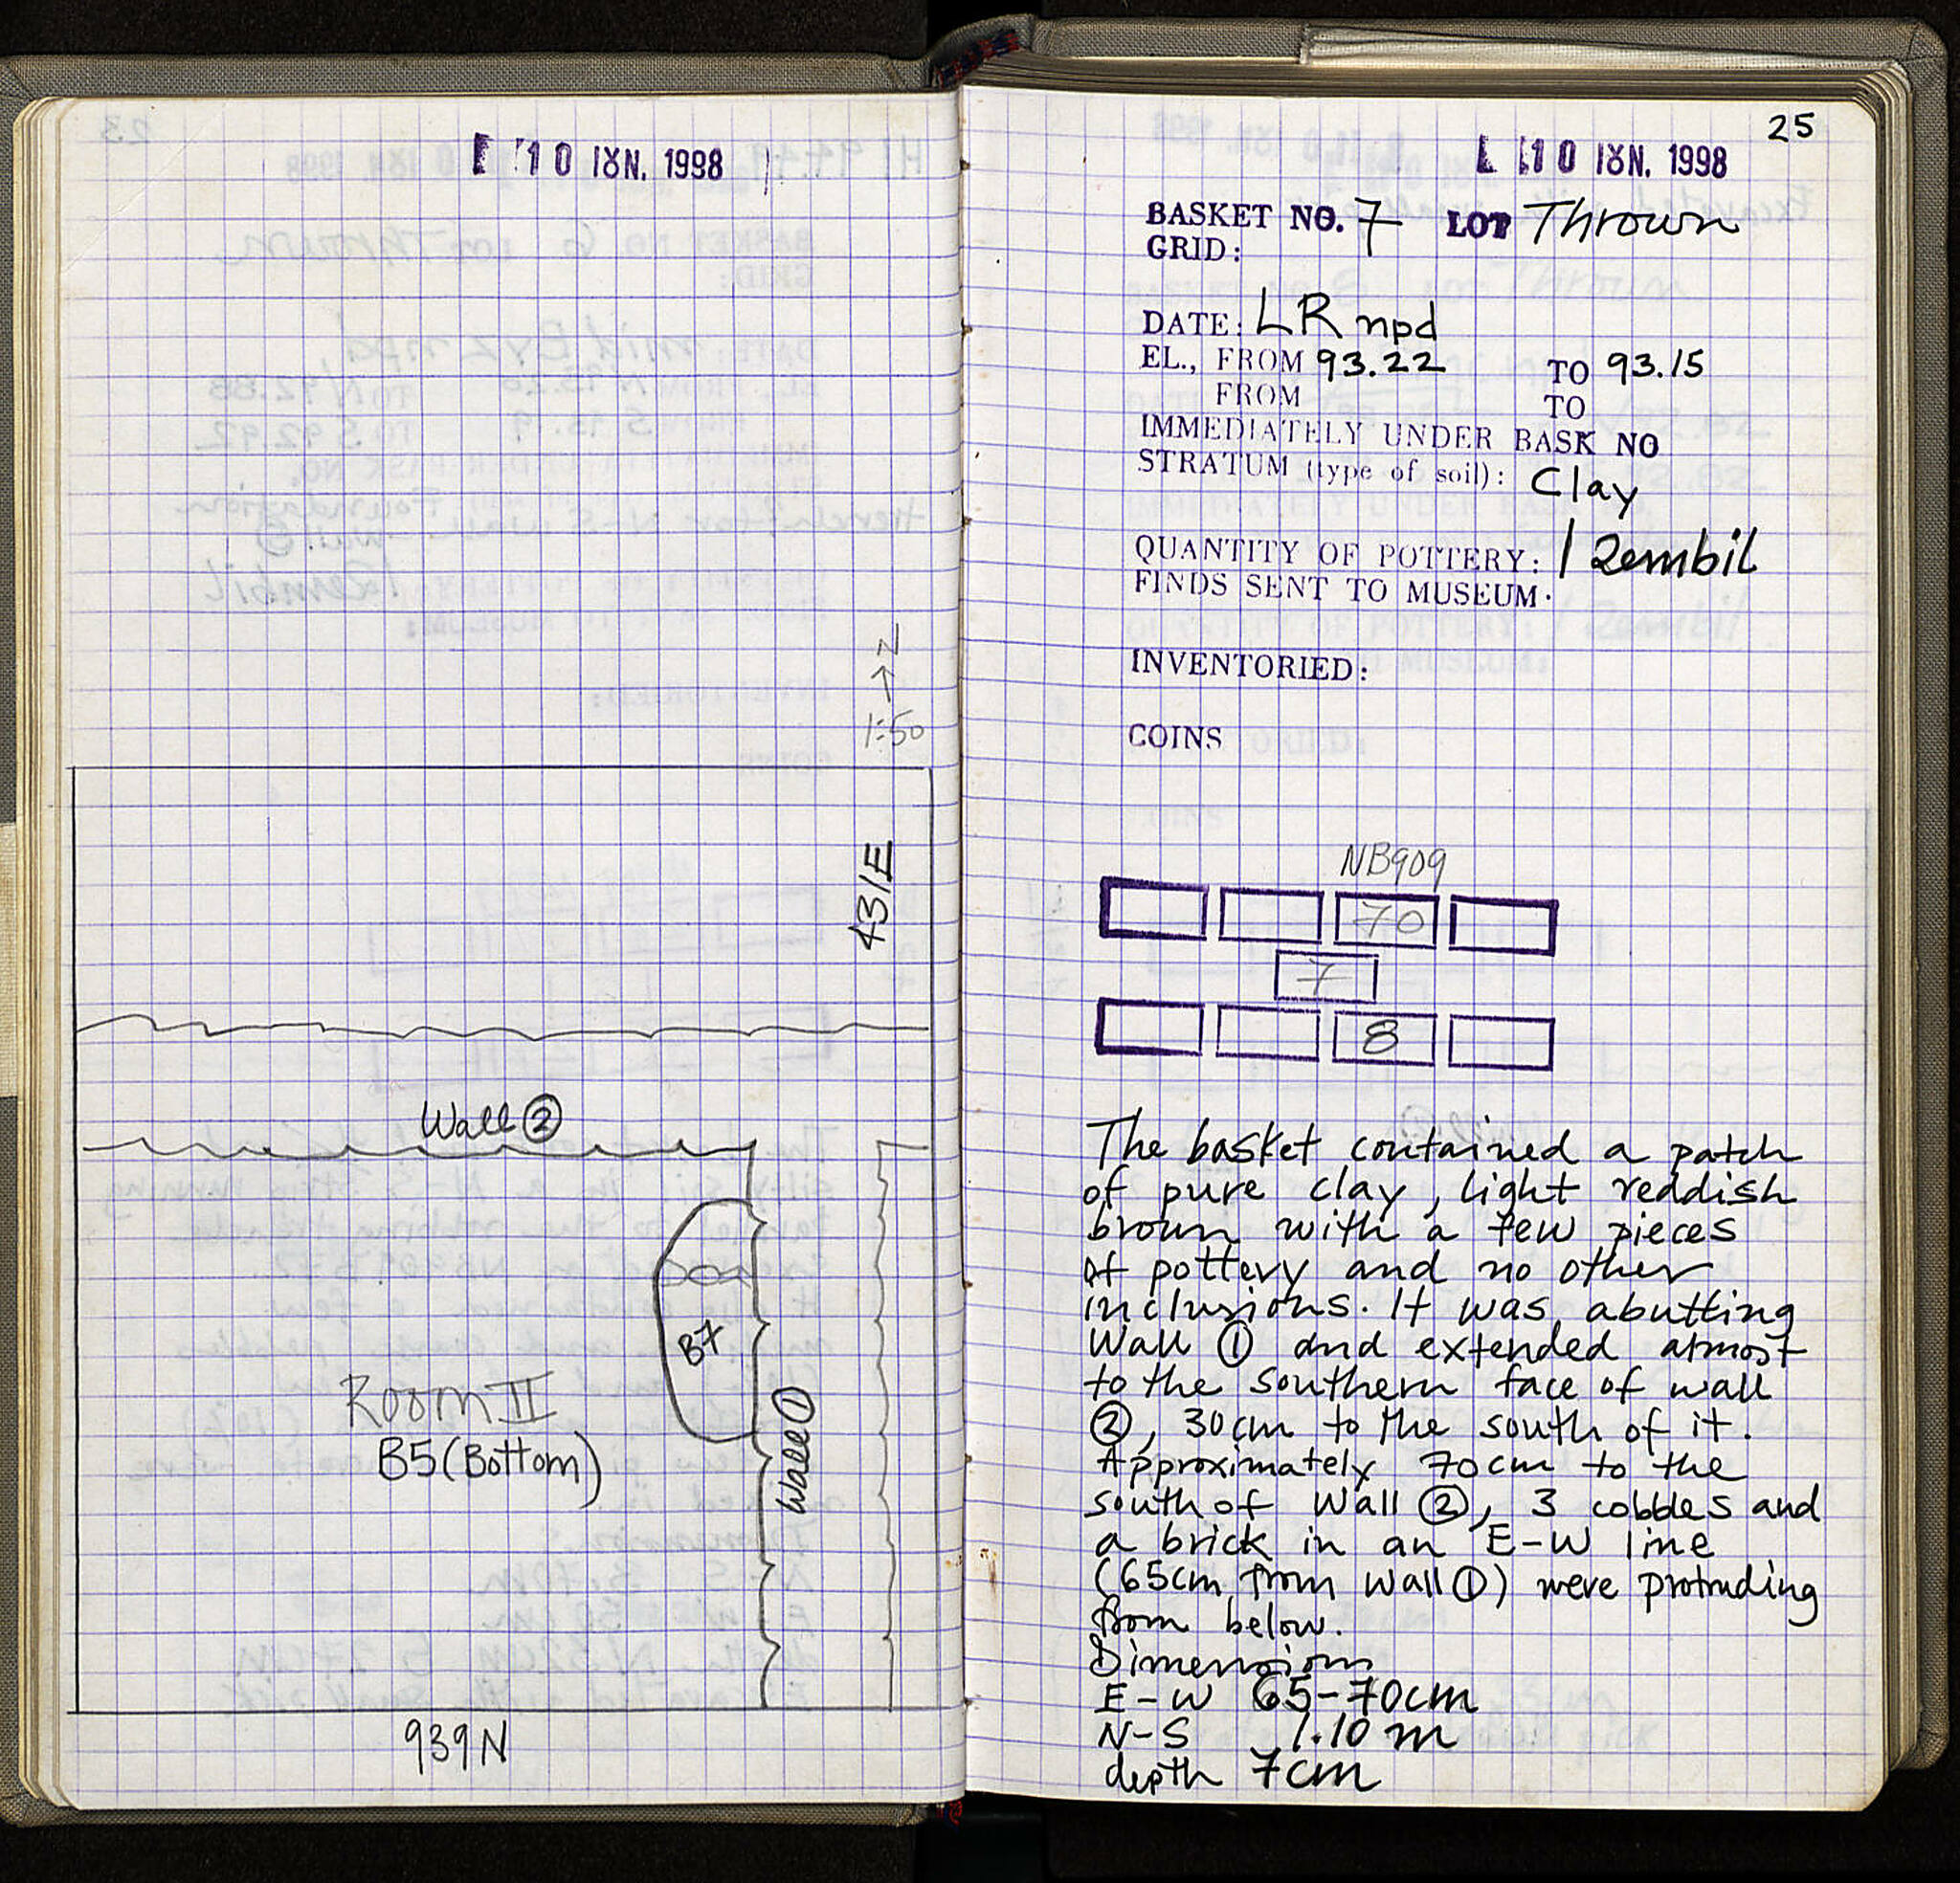 10 ΙΟΥΝ. 1998
1:50
N
431E
Wall ②
B7
Room II
B5 (Bottom)
Wall ①
939N
25
10 ΙΟΥΝ. 1998
BASKET NO. 7 LOT Thrown
GRID:
DATE: LR npd
EL., FROM 93.22 TO 93.15
FROM TO
IMMEDIATELY UNDER BASK NO
STRATUM (type of soil): Clay
QUANTITY OF POTTERY: 1 zembil
FINDS SENT TO MUSEUM.
INVENTORIED:
COINS
NB909
70
7
8
The basket contained a patch
of pure clay, light reddish
brown with a few pieces
of pottery and no other
inclusions. It was abutting
Wall ① and extended almost
to the southern face of wall
②, 30cm to the south of it.
Approximately 70cm to the
south of Wall ②, 3 cobbles and
a brick in an E-W line
(65cm from wall ①) were protruding
from below.
Dimensions
E-W 65-70cm
N-S 1.10m
depth 7cm